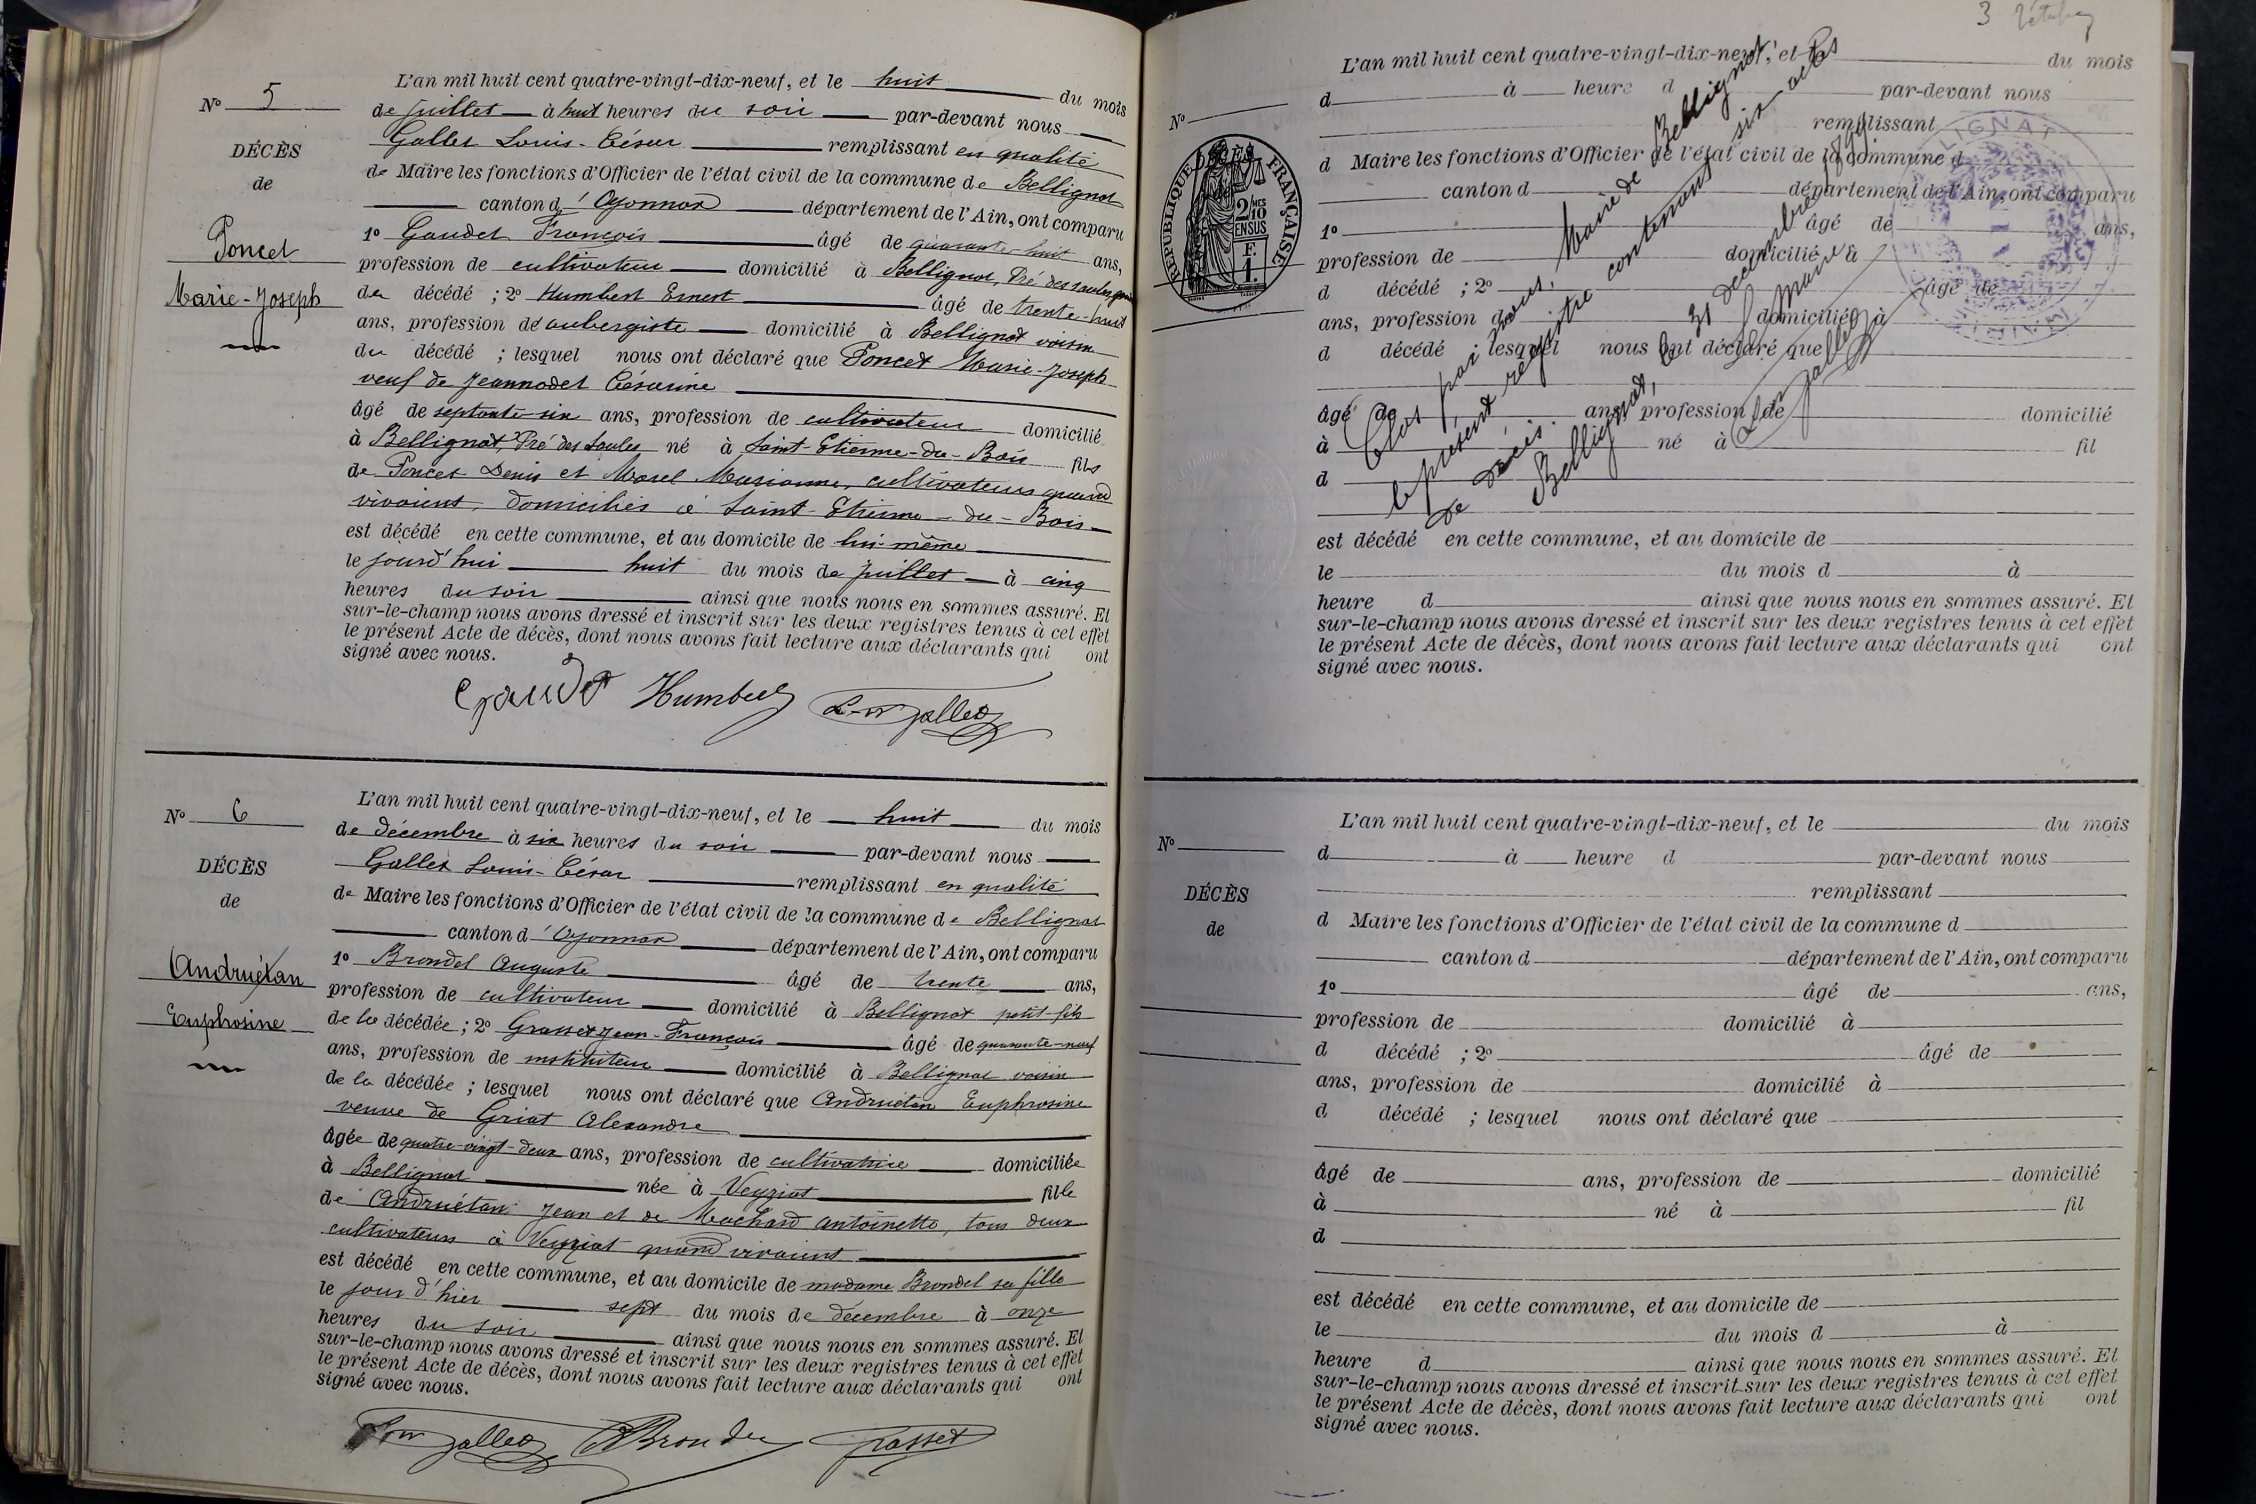 N° 5
DÉCÈS
de
Poncet
Marie-Joseph
L'an mil huit cent quatre-vingt-dix-neuf, et le huit du mois
de juillet à huit heures du soir par-devant nous
Gallet Louis-César remplissant en qualité
de Maire les fonctions d'Officier de l'état civil de la commune de Bellignat
canton d'Oyonnax département de l'Ain, ont comparu
1° Gaudet François âgé de quarante-huit ans,
profession de cultivateur domicilié à Bellignat, Pré des Saules,
du décédé ; 2° Humbert Ernest âgé de trente-huit
ans, profession de aubergiste domicilié à Bellignat voisin
du décédé ; lesquel nous ont déclaré que Poncet Marie-Joseph
veuf de Jeannodet Césarine
âgé de septante-six ans, profession de cultivateur domicilié
à Bellignat, Pré des Saules né à Saint-Etienne-du-Bois fils
de Poncet Denis et Morel Marianne, cultivateurs quand
vivaient, domiciliés à Saint-Etienne-du-Bois
est décédé en cette commune, et au domicile de lui-même
le jourd'hui huit du mois de juillet à cinq
heures du soir ainsi que nous nous en sommes assuré. Et
sur-le-champ nous avons dressé et inscrit sur les deux registres tenus à cet effet
le présent Acte de décès, dont nous avons fait lecture aux déclarants qui ont
signé avec nous.
Gaudet Humbert Gallet
N° 6
DÉCÈS
de
Andruétan
Euphrosine
L'an mil huit cent quatre-vingt-dix-neuf, et le huit du mois
de décembre à six heures du soir par-devant nous
Gallet Louis-César remplissant en qualité
de Maire les fonctions d'Officier de l'état civil de la commune de Bellignat
canton d'Oyonnax département de l'Ain, ont comparu
1° Brondel Auguste âgé de trente ans,
profession de cultivateur domicilié à Bellignat petit-fils
de la décédée ; 2° Grasset Jean-François âgé de quarante-neuf
ans, profession de instituteur domicilié à Bellignat voisin
de la décédée ; lesquel nous ont déclaré que Andruétan Euphrosine
veuve de Griat Alexandre
âgée de quatre-vingt-deux ans, profession de cultivatrice domiciliée
à Bellignat née à Veyziat fille
de Andruétan Jean et de Mochard Antoinette, tous deux
cultivateurs à Veyziat quand vivaient
est décédé en cette commune, et au domicile de madame Brondel sa fille
le jour d'hier sept du mois de décembre à onze
heures du soir ainsi que nous nous en sommes assuré. Et
sur-le-champ nous avons dressé et inscrit sur les deux registres tenus à cet effet
le présent Acte de décès, dont nous avons fait lecture aux déclarants qui ont
signé avec nous.
Gallet Brondel Grasset
3
N°
DÉCÈS
RÉPUBLIQUE FRANÇAISE
2/10 MES
EN SUS
F.
1.
L'an mil huit cent quatre-vingt-dix-neuf, et le du mois
d à heure d par-devant nous
remplissant
d Maire les fonctions d'Officier de l'état civil de la commune d
canton d département de l'Ain, ont comparu
1° âgé de ans,
profession de domicilié à
d décédé ; 2° âgé de
ans, profession de domicilié à
d décédé ; lesquel nous ont déclaré que
âgé de ans, profession de domicilié
à né à fil
d
est décédé en cette commune, et au domicile de
le du mois d à
heure d ainsi que nous nous en sommes assuré. Et
sur-le-champ nous avons dressé et inscrit sur les deux registres tenus à cet effet
le présent Acte de décès, dont nous avons fait lecture aux déclarants qui ont
signé avec nous.
Clos par nous, Maire de Bellignat,
le présent registre contenant six actes
de décès.
Bellignat, le 31 décembre 1899
Le Maire
Gallet
N°
DÉCÈS
de
L'an mil huit cent quatre-vingt-dix-neuf, et le du mois
d à heure d par-devant nous
remplissant
d Maire les fonctions d'Officier de l'état civil de la commune d
canton d département de l'Ain, ont comparu
1° âgé de ans,
profession de domicilié à
d décédé ; 2° âgé de
ans, profession de domicilié à
d décédé ; lesquel nous ont déclaré que
âgé de ans, profession de domicilié
à né à fil
d
est décédé en cette commune, et au domicile de
le du mois d à
heure d ainsi que nous nous en sommes assuré. Et
sur-le-champ nous avons dressé et inscrit sur les deux registres tenus à cet effet
le présent Acte de décès, dont nous avons fait lecture aux déclarants qui ont
signé avec nous.